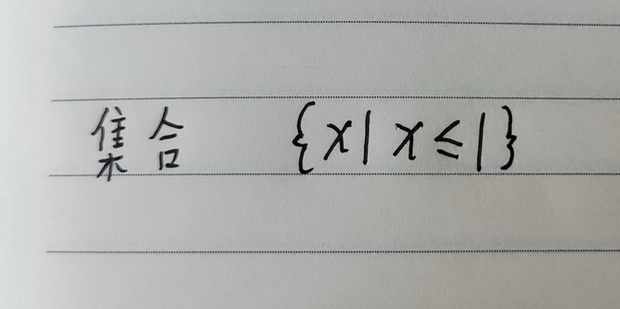 集合 {x| x≤1}